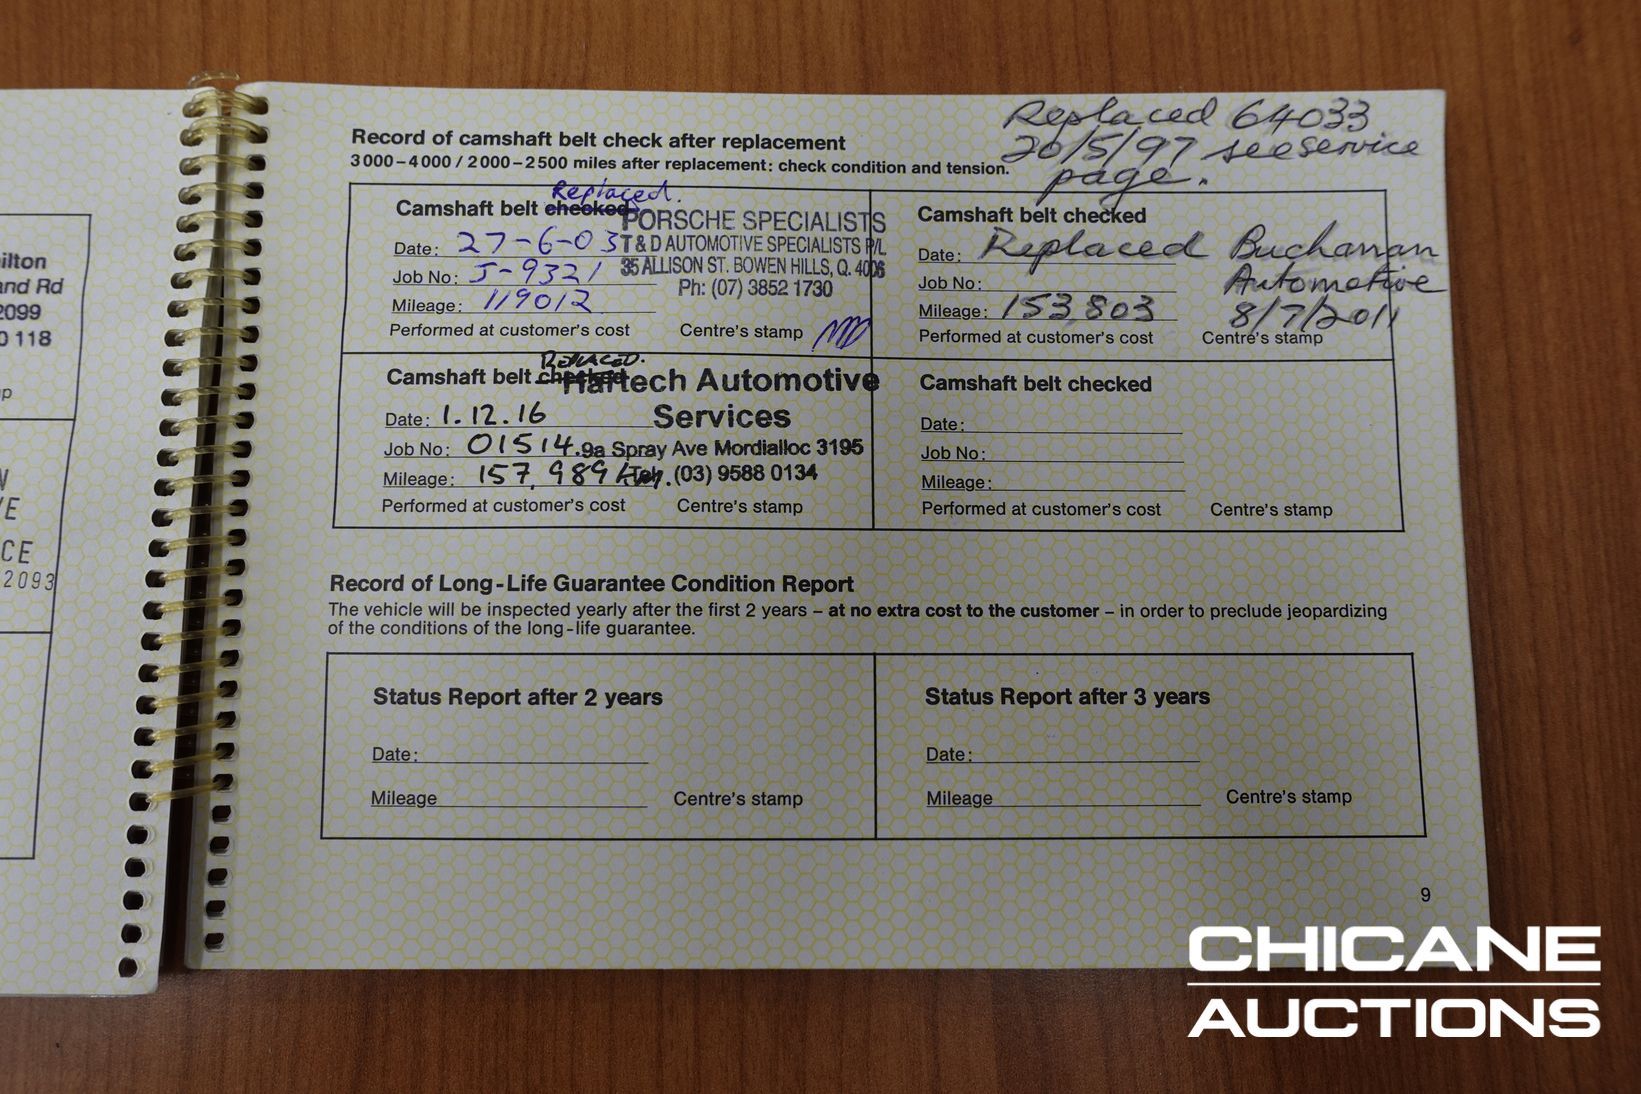 ilton
and Rd
2099
0 118
p
N
VE
CE
2093
Replaced 64033
20/5/97 see service
page.
Record of camshaft belt check after replacement
3000–4000 / 2000–2500 miles after replacement: check condition and tension.
Replaced.
Camshaft belt checked
Date: 27-6-03
Job No: J-9321
Mileage: 119012
Performed at customer's cost
PORSCHE SPECIALISTS
T & D AUTOMOTIVE SPECIALISTS P/L
35 ALLISON ST. BOWEN HILLS, Q. 4006
Ph: (07) 3852 1730
Centre's stamp
Camshaft belt checked
Date: Replaced Buchanan
Automotive
Job No:
Mileage: 153803 8/7/2011
Performed at customer's cost Centre's stamp
REPLACED.
Camshaft belt checked
Date: 1.12.16
Job No: 01514.
Mileage: 157,989
Performed at customer's cost
Hartech Automotive
Services
9a Spray Ave Mordialloc 3195
(03) 9588 0134
Centre's stamp
Camshaft belt checked
Date:
Job No:
Mileage:
Performed at customer's cost Centre's stamp
Record of Long-Life Guarantee Condition Report
The vehicle will be inspected yearly after the first 2 years – at no extra cost to the customer – in order to preclude jeopardizing
of the conditions of the long-life guarantee.
Status Report after 2 years
Date:
Mileage Centre's stamp
Status Report after 3 years
Date:
Mileage Centre's stamp
9
CHICANE
AUCTIONS